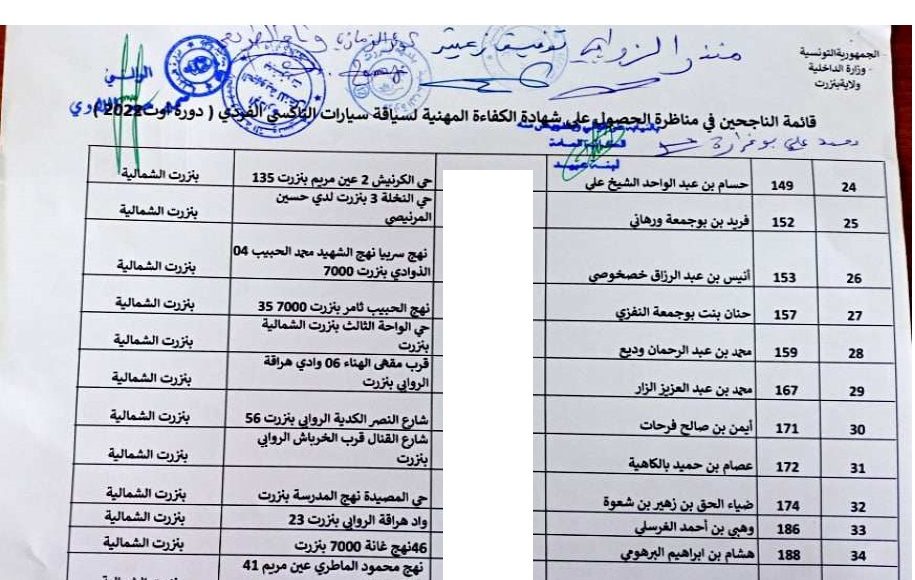 الجمهورية التونسية
وزارة الداخلية
ولاية بنزرت
منذر الزوابي توفيق زعيتر
قائمة الناجحين في مناظرة الحصول على شهادة الكفاءة المهنية لسياقة سيارات التاكسي الفردي ( دورة أوت 2022 )
24 149 حسام بن عبد الواحد الشيخ علي حي الكرنيش 2 عين مريم بنزرت 135 بنزرت الشمالية
25 152 فريد بن بوجمعة ورهاني حي النخلة 3 بنزرت لدي حسين المرنيصي بنزرت الشمالية
26 153 أنيس بن عبد الرزاق خصخوصي نهج سربيا نهج الشهيد محمد الحبيب 04 الذوادي بنزرت 7000 بنزرت الشمالية
27 157 حنان بنت بوجمعة النفزي نهج الحبيب ثامر بنزرت 7000 35 بنزرت الشمالية
28 159 محمد بن عبد الرحمان وديع حي الواحة الثالث بنزرت الشمالية بنزرت بنزرت الشمالية
29 167 محمد بن عبد العزيز الزار قرب مقهى الهناء 06 وادي هراقة الروابي بنزرت بنزرت الشمالية
30 171 أيمن بن صالح فرحات شارع النصر الكدية الروابي بنزرت 56 بنزرت الشمالية
31 172 عصام بن حميد بالكاهية شارع القنال قرب الخرباش الروابي بنزرت بنزرت الشمالية
32 174 ضياء الحق بن زهير بن شعوة حي المصيدة نهج المدرسة بنزرت بنزرت الشمالية
33 186 وهبي بن أحمد الغرسلي واد هراقة الروابي بنزرت 23 بنزرت الشمالية
34 188 هشام بن ابراهيم البرهومي 46نهج غانة 7000 بنزرت بنزرت الشمالية
نهج محمود الماطري عين مريم 41